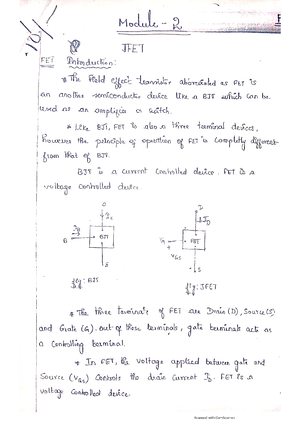 Module - 2
JFET
FET Introduction:
* The Field effect transistor abbreviated as FET is
an another semiconductor device like a BJT which can be
used as an amplifier or switch.
* Like BJT, FET is also a three terminal device,
however the principle of operation of FET is completly different
from that of BJT.
BJT is a current controlled device. FET is a
voltage controlled device
BJT
FET
B
VGS
fig: BJT
fig: JFET
* The three terminals of FET are Drain (D), Source (S)
and Grate (G). out of these terminals, gate terminals acts as
a controlling terminal.
* In FET, the voltage applied between gate and
Source (VGS) controls the drain current ID. FET is a
voltage controlled device.